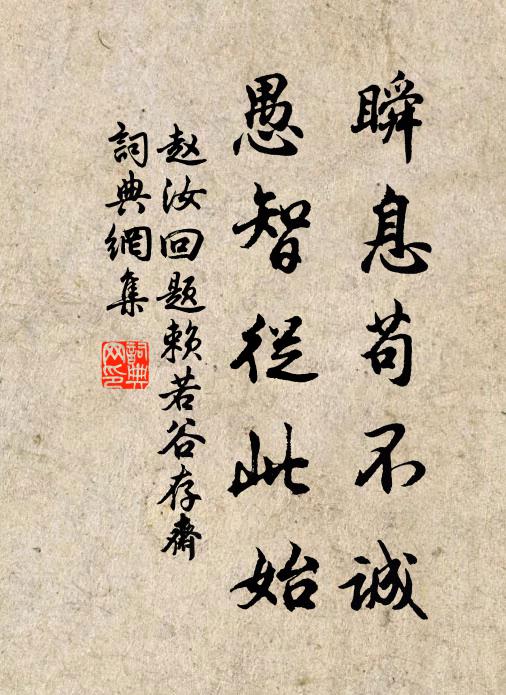 瞬息苟不誠
愚智從此始
赵汝回题赖若谷存齋
詞典網集
詞典
网印